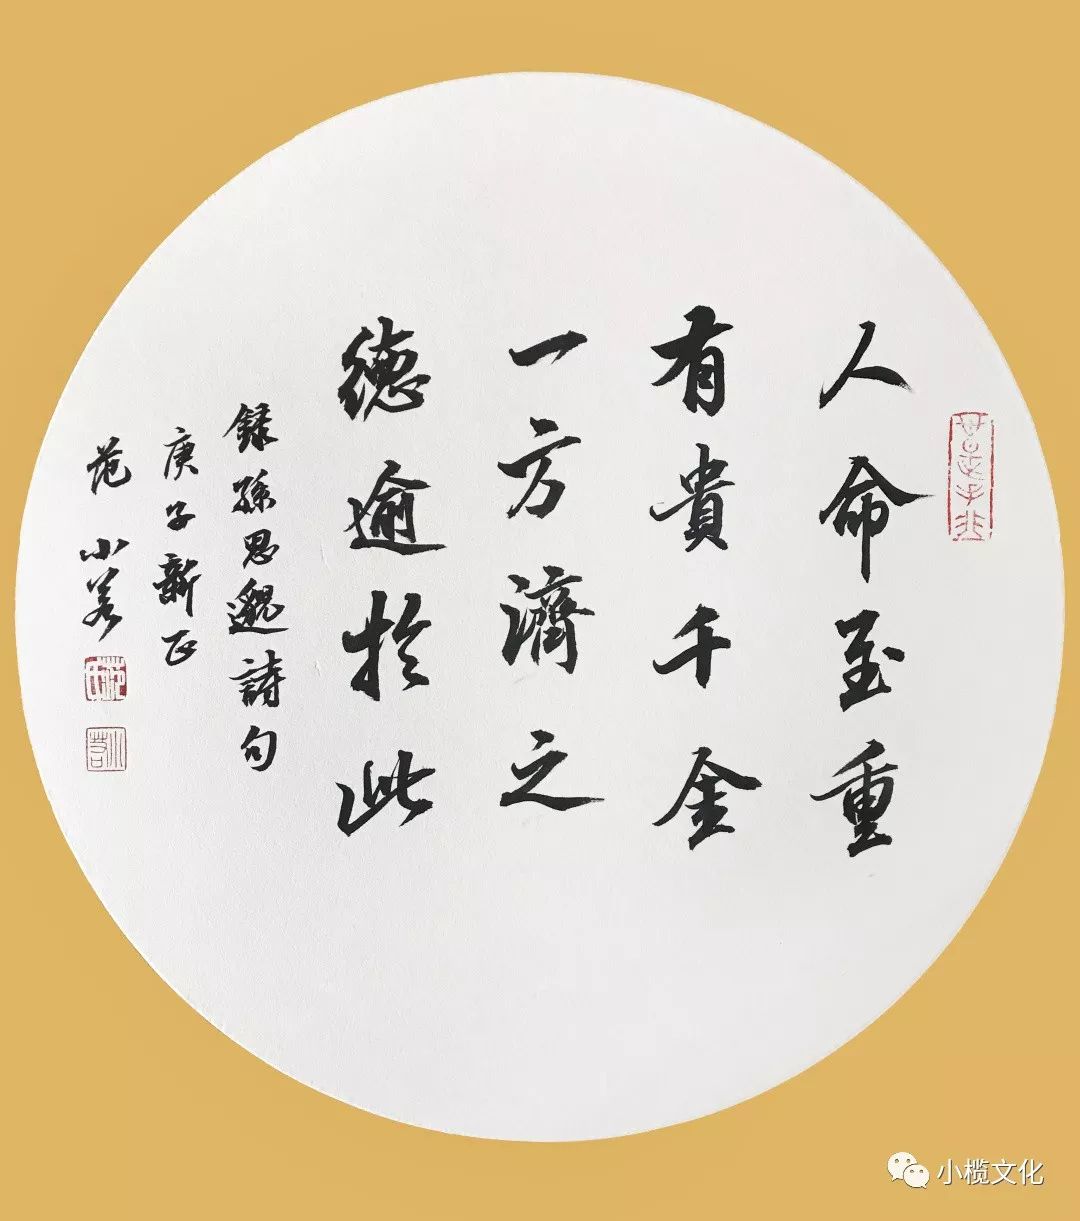 人命至重
有貴千金
一方濟之
德逾於此
録孫思邈詩句
庚子新正
范小若
小榄文化